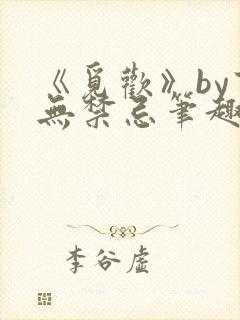 《覓歡》by
無禁忌筆趣
李谷虛